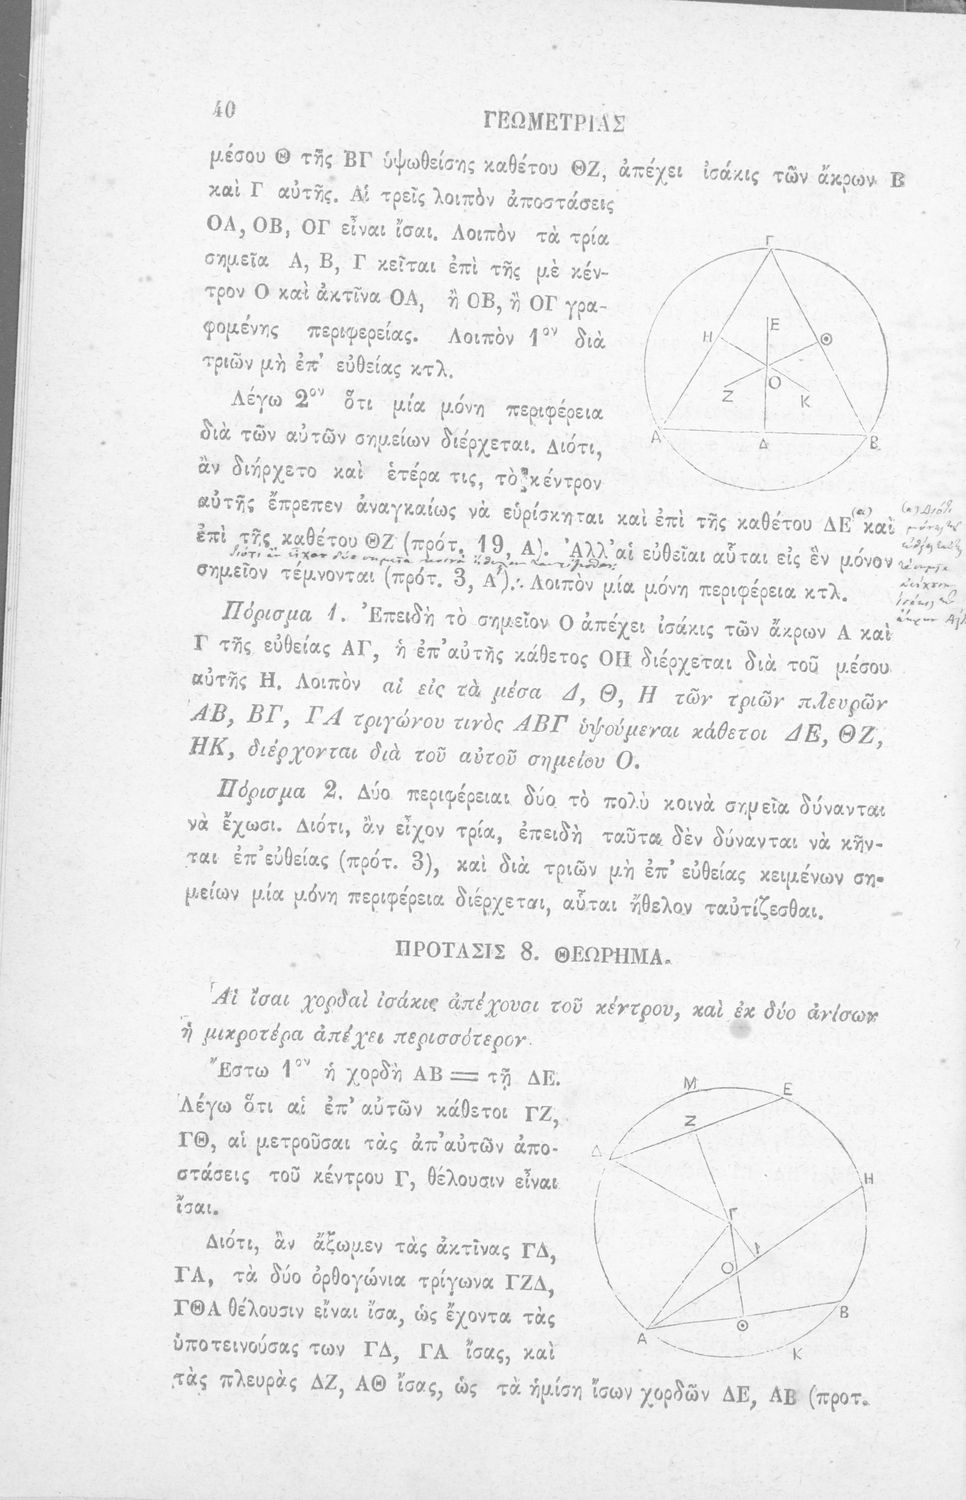 40
ΓΕΩΜΕΤΡΙΑΣ
μέσου Θ τῆς ΒΓ ὑψωθείσης καθέτου ΘΖ, ἀπέχει ἰσάκις τῶν ἄκρων Β
καὶ Γ αὐτῆς. Αἱ τρεῖς λοιπὸν ἀποστάσεις
ΟΑ, ΟΒ, ΟΓ εἶναι ἴσαι. Λοιπὸν τὰ τρία
σημεῖα Α, Β, Γ κεῖται ἐπὶ τῆς μὲ κέν-
τρον Ο καὶ ἀκτῖνα ΟΑ, ἢ ΟΒ, ἢ ΟΓ γρα-
φομένης περιφερείας. Λοιπὸν 1ον διὰ
τριῶν μὴ ἐπ' εὐθείας κτλ.
Λέγω 2ον ὅτι μία μόνη περιφέρεια
διὰ τῶν αὐτῶν σημείων διέρχεται. Διότι,
ἂν διήρχετο καὶ ἑτέρα τις, τὸ κέντρον
Γ
Η
Ε
Θ
Ο
Ζ
Κ
Α
Δ
Β
αὐτῆς ἔπρεπεν ἀναγκαίως νὰ εὑρίσκηται καὶ ἐπὶ τῆς καθέτου ΔΕ (α) καὶ
ἐπὶ τῆς καθέτου ΘΖ (πρότ. 19, Α). Ἀλλ' αἱ εὐθεῖαι αὗται εἰς ἓν μόνον
σημεῖον τέμνονται (πρότ. 3, Α). Λοιπὸν μία μόνη περιφέρεια κτλ.
(α) Διότι
Πόρισμα 1. Ἐπειδὴ τὸ σημεῖον Ο ἀπέχει ἰσάκις τῶν ἄκρων Α καὶ
Γ τῆς εὐθείας ΑΓ, ἡ ἐπ' αὐτῆς κάθετος ΟΗ διέρχεται διὰ τοῦ μέσου
αὐτῆς Η. Λοιπὸν αἱ εἰς τὰ μέσα Δ, Θ, Η τῶν τριῶν πλευρῶν
ΑΒ, ΒΓ, ΓΑ τριγώνου τινὸς ΑΒΓ ὑψούμεναι κάθετοι ΔΕ, ΘΖ,
ΗΚ, διέρχονται διὰ τοῦ αὐτοῦ σημείου Ο.
Πόρισμα 2. Δύο περιφέρειαι δύο τὸ πολὺ κοινὰ σημεῖα δύνανται
νὰ ἔχωσι. Διότι, ἂν εἶχον τρία, ἐπειδὴ ταῦτα δὲν δύνανται νὰ κῆν-
ται ἐπ' εὐθείας (πρότ. 3), καὶ διὰ τριῶν μὴ ἐπ' εὐθείας κειμένων ση-
μείων μία μόνη περιφέρεια διέρχεται, αὗται ἤθελον ταὐτίζεσθαι.
ΠΡΟΤΑΣΙΣ 8. ΘΕΩΡΗΜΑ.
Αἱ ἴσαι χορδαὶ ἰσάκις ἀπέχουσι τοῦ κέντρου, καὶ ἐκ δύο ἀνίσων
ἡ μικροτέρα ἀπέχει περισσότερον.
Ἔστω 1ον ἡ χορδὴ ΑΒ = τῇ ΔΕ.
Λέγω ὅτι αἱ ἐπ' αὐτῶν κάθετοι ΓΖ,
ΓΘ, αἱ μετροῦσαι τὰς ἀπ' αὐτῶν ἀπο-
στάσεις τοῦ κέντρου Γ, θέλουσιν εἶναι
ἴσαι.
Διότι, ἂν ἄξωμεν τὰς ἀκτῖνας ΓΔ,
ΓΑ, τὰ δύο ὀρθογώνια τρίγωνα ΓΖΔ,
ΓΘΑ θέλουσιν εἶναι ἴσα, ὡς ἔχοντα τὰς
ὑποτεινούσας των ΓΔ, ΓΑ ἴσας, καὶ
τὰς πλευρὰς ΔΖ, ΑΘ ἴσας, ὡς τὰ ἡμίση ἴσων χορδῶν ΔΕ, ΑΒ (προτ.
Μ
Ε
Ζ
Δ
Η
Γ
Ι
Ο
Β
Α
Θ
Κ